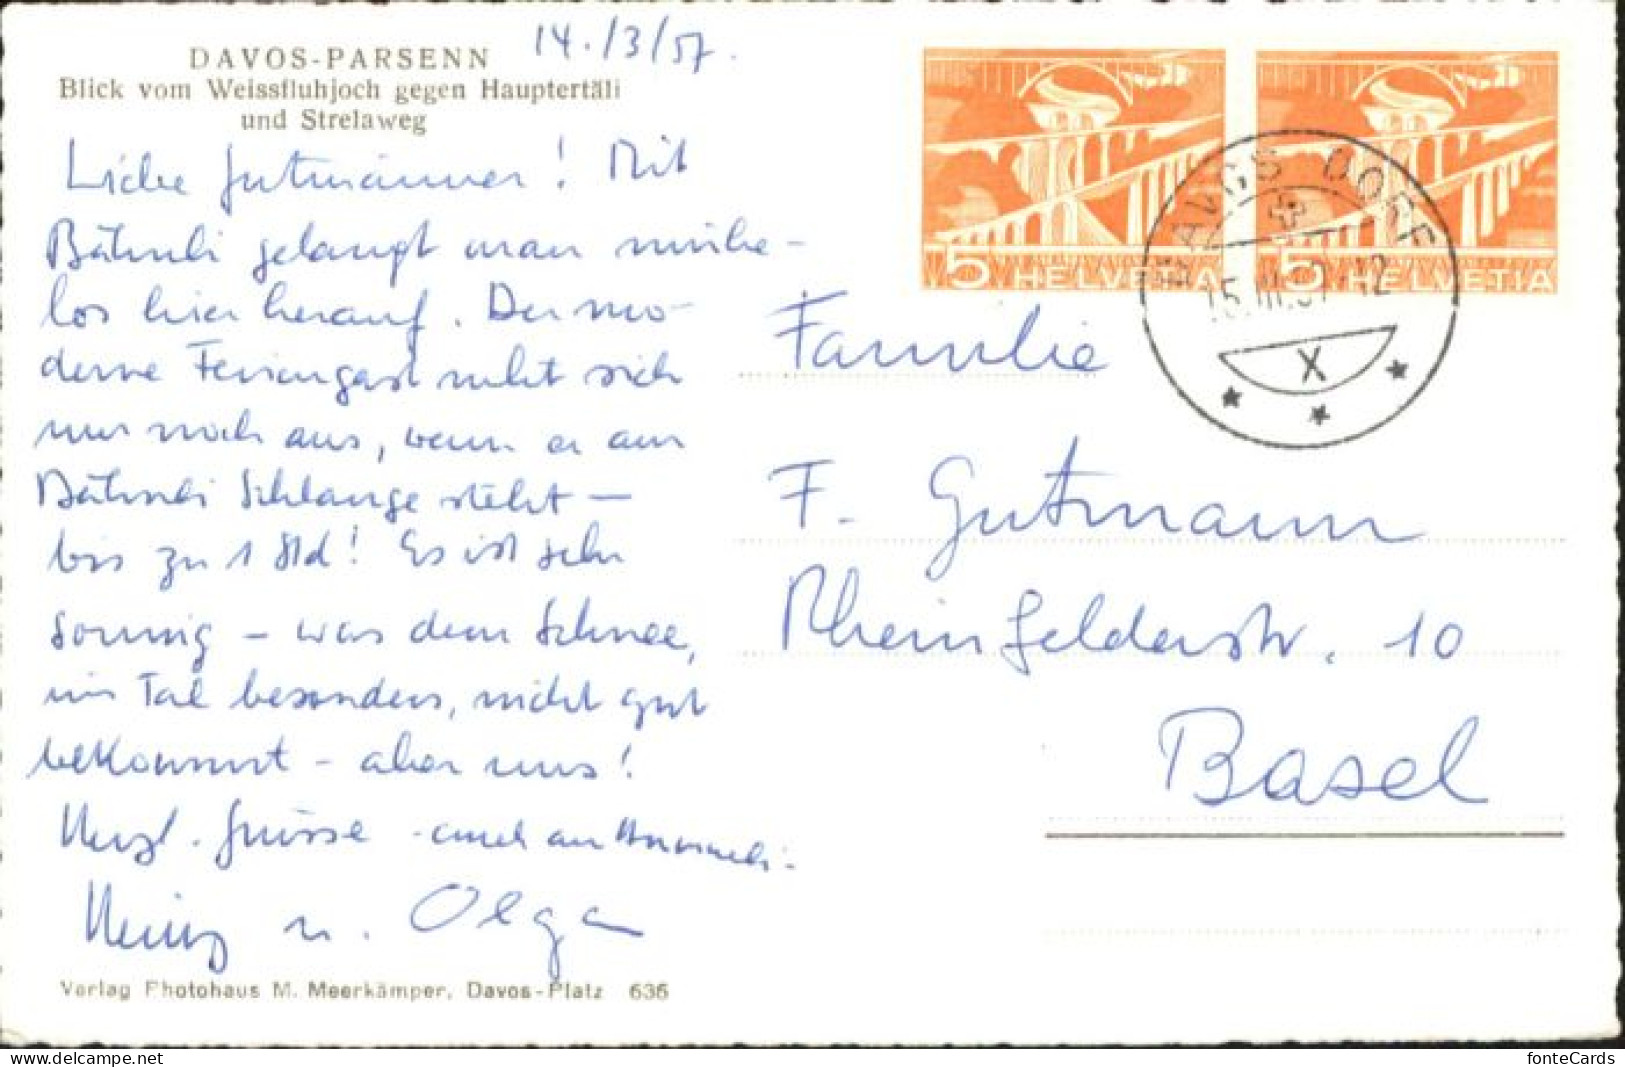 DAVOS-PARSENN
14./3/57.
Blick vom Weissfluhjoch gegen Hauptertäli
und Strelaweg
Liebe Gutmänner! Mit
Bähnli gelangt man mühe-
los hier herauf. Der mo-
derne Feriengast ruht sich
nur noch aus, wenn er am
Bähnli Schlange steht –
bis zu 1 Std! Es ist sehr
sonnig – was dem Schnee,
im Tal besonders, nicht gut
bekommt – aber uns!
Herzl. Grüsse - auch an
Heinz u. Olga
Verlag Photohaus M. Meerkämper, Davos-Platz 636
5 HELVETIA
5 HELVETIA
DAVOS DORF
15.III.57-12
X
Familie
F. Gutmann
Rheinfelderstr. 10
Basel
fonteCards